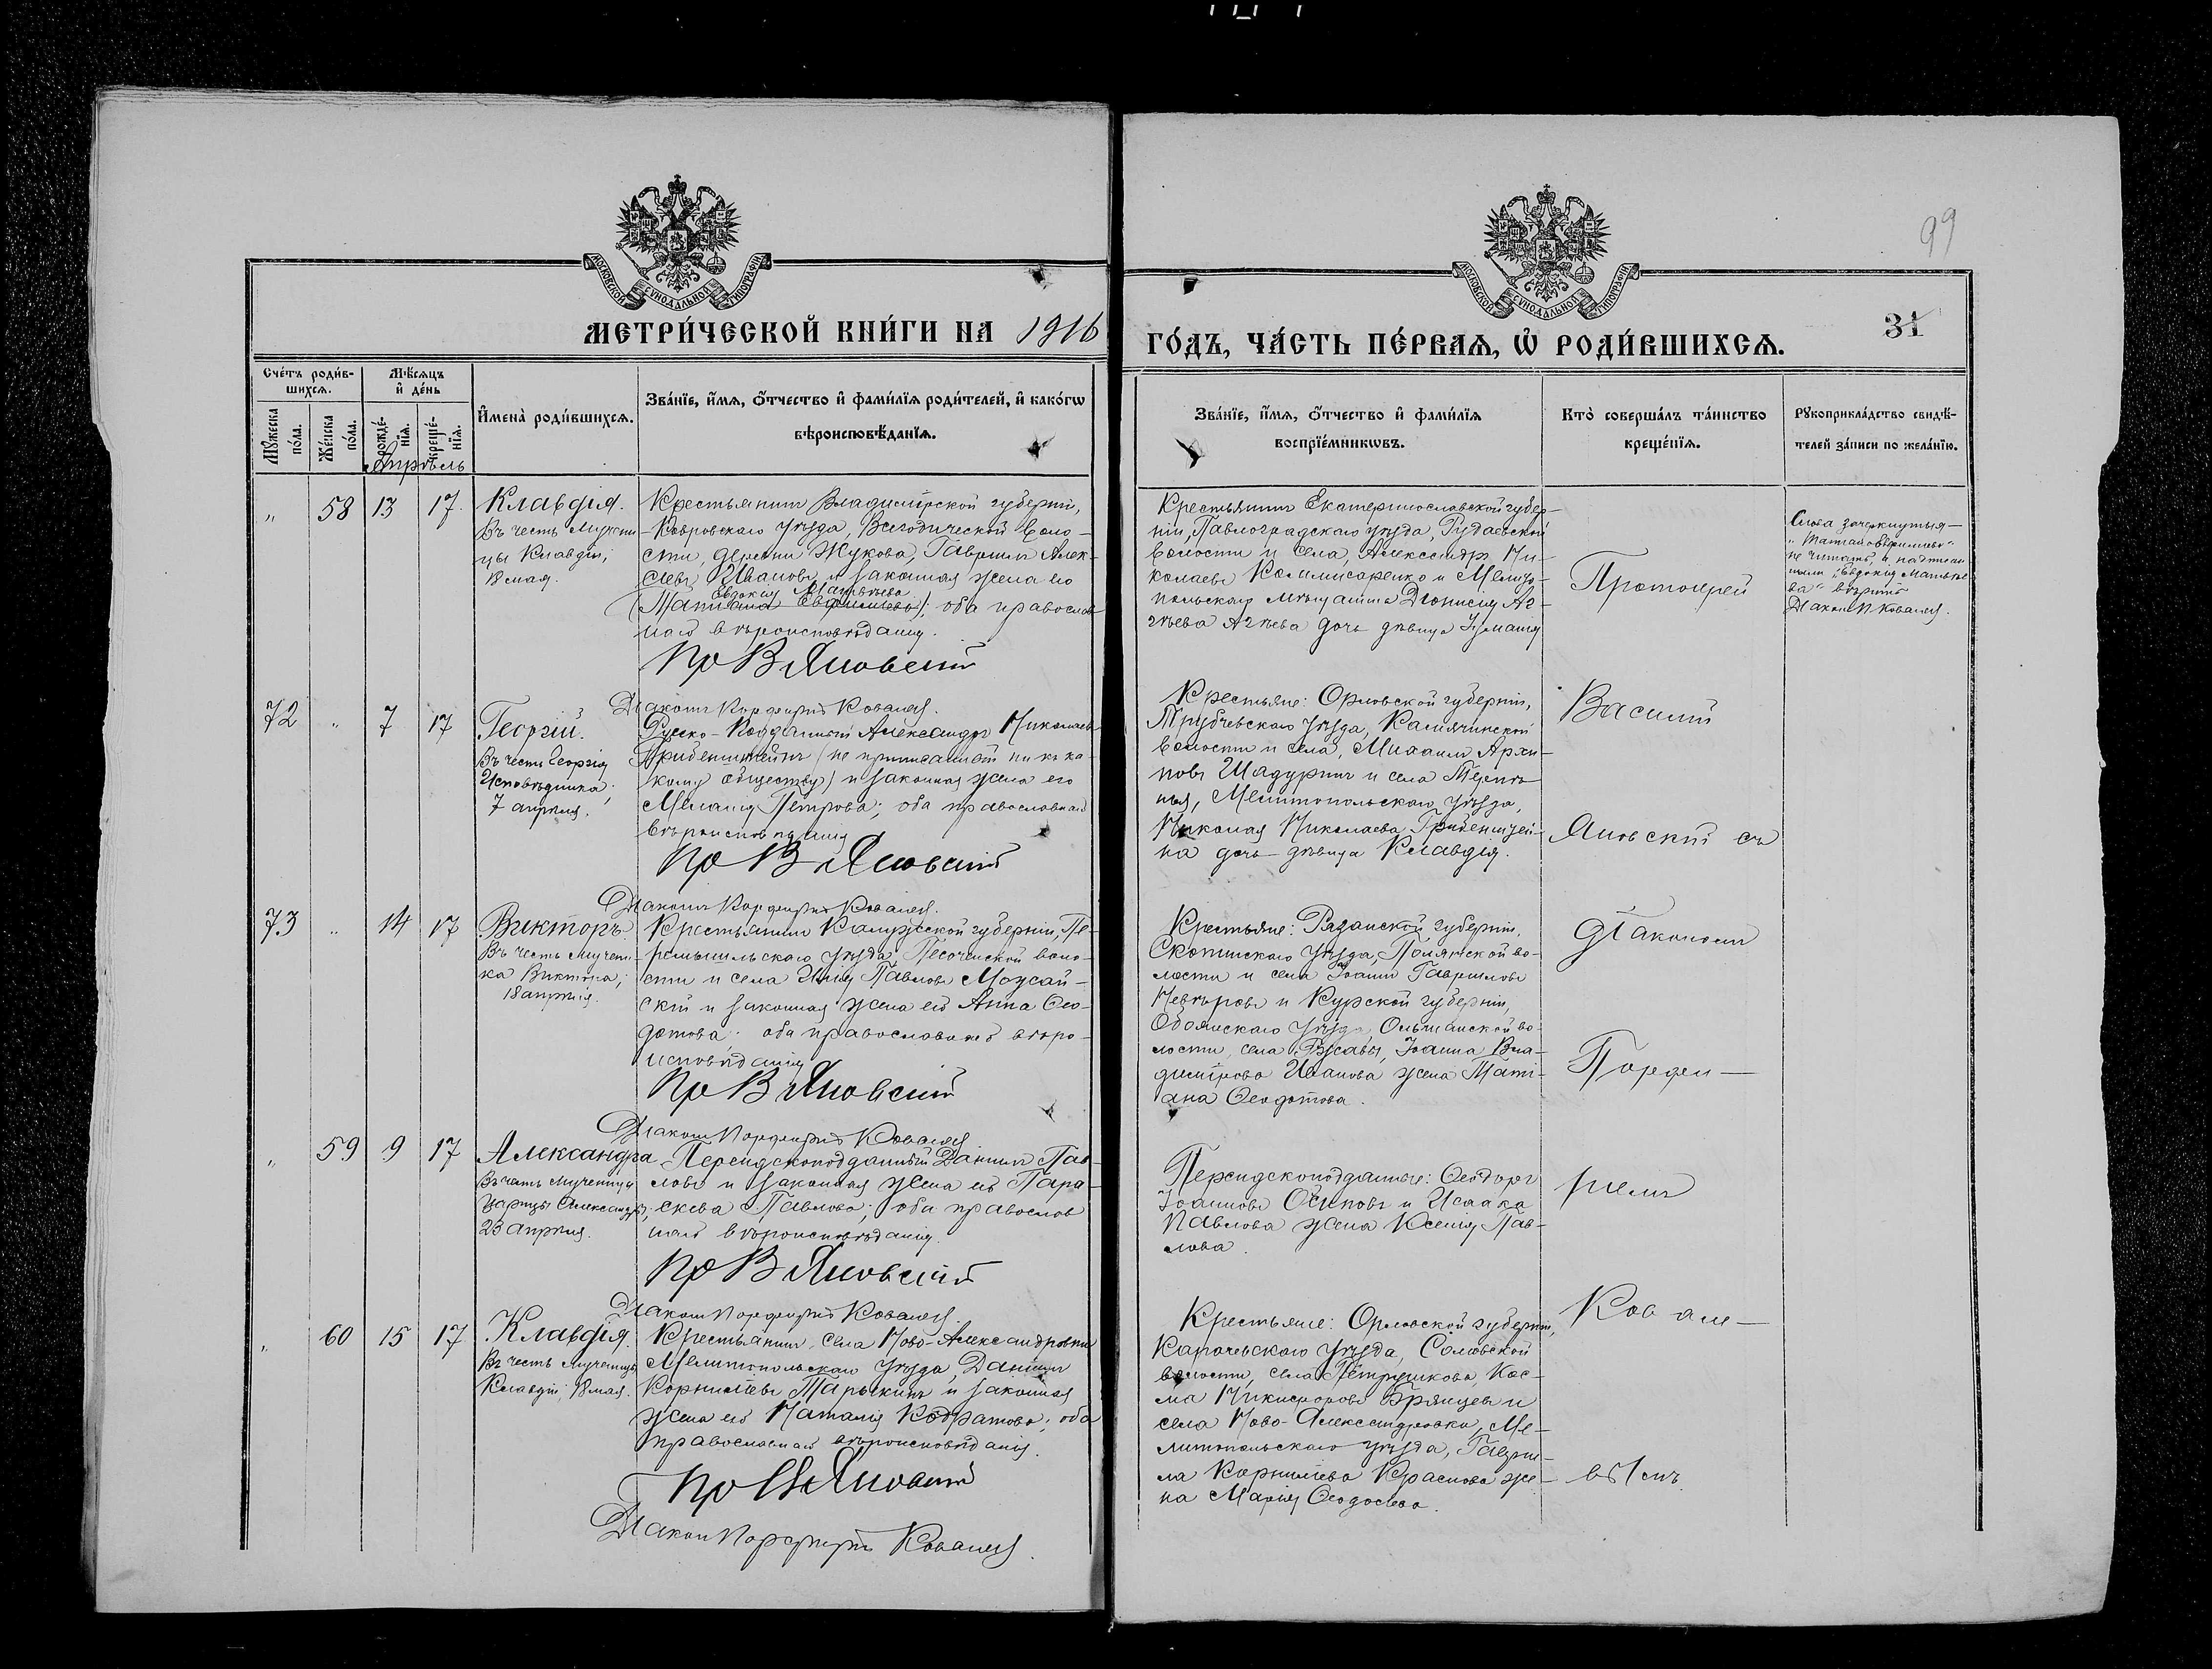 99
МОСКОВСКОЙ СѴНОДАЛЬНОЙ ТИПОГРАФІИ
МОСКОВСКОЙ СѴНОДАЛЬНОЙ ТИПОГРАФІИ
МЕТРИ́ЧЕСКОЙ КНИ́ГИ НА 1916
ГО́ДЪ, ЧА́СТЬ ПЕ́РВАЯ, Ѡ РОДИ́ВШИХСЯ.
31
Сче́тъ роди́в-
шихся.
Мѣ́сяцъ
и де́нь
Мꙋ́жеска по́ла.
Же́нска по́ла.
рожде́-
нїя.
креще́-
нїя.
Имена̀ роди́вшихся.
Зва́нїе, и́мя, о́тчество и фами́лїя роди́телей, и како́гѡ
вѣроисповѣ́данїя.
Зва́нїе, и́мя, о́тчество и фами́лїя
воспрїе́мникѡвъ.
Кто̀ соверша́лъ та́инство
креще́нїя.
Рꙋкоприкла́дство свидѣ́-
телей за́писи по жела́нїю.
Апрѣль
" 58 13 17
Клавдія.
Въ честь Мучени-
цы Клавдіи,
18 мая.
Крестьянинъ Владимірской губерніи,
Ковровскаго уѣзда, Всегодической воло-
сти, деревни Жукова, Гавріилъ Алек-
сіевъ Ивановъ и законная жена его
Евдокія Матвѣева
(Татіана Евфиміева); оба православ
наго вѣроисповѣданія.
Пр В Яновскій
Діаконъ Порфирій Ковалев.
Крестьянинъ Екатеринославской губер-
ніи, Павлоградскаго уѣзда,
волости и села, Александръ Ни-
колаевъ Коммисаренко и Мелито-
польскаго мѣщанина Діонисія Аг-
гѣева Агѣева дочь дѣвица
Протоіерей
Слова зачеркнутыя
"Татіана Евфиміева"
не читать, а надписан
ныя "Евдокія Матвѣе
ва" вѣрить
Діаконъ П Ковалев.
72 " 7 17
Георгій.
Въ честь Георгія
Исповѣдника,
7 апрѣля.
Русско-Подданный Александръ Николаевъ
(не приписанный ни къ ка-
кому обществу) и законная жена его
Меланія Петрова; оба православнаго
вѣроисповѣданія
Пр В Яновскій
Діаконъ Порфирій Ковалев.
Крестьяне: Орловской губерніи,
Трубчевскаго уѣзда,
волости и села, Михаилъ Архи-
повъ Шадуринъ и села Терпѣ
нья, Мелитопольскаго уѣзда,
Николая Николаева Гриденштей-
на дочь-дѣвица Клавдія.
Василій
Яновскій съ
73 " 14 17
Викторъ.
Въ честь Мучени-
ка Виктора,
18 апрѣля.
Крестьянинъ Калужской губерніи, Пе-
ремышльскаго уѣзда, Песоченской воло-
сти и села Илія Павловъ Можай-
скій и законная жена его Анна Ѳео-
дотова; оба православнаго вѣро-
исповѣданія
Пр В Яновскій
Діаконъ Порфирій Ковалев
Крестьяне: Рязанской губерніи,
Скопинскаго уѣзда, во-
лости и села Іоаннъ Гавриловъ
и Курской губерніи,
Обоянскаго уѣзда, Ольшанской во-
лости, села Ржавы, Іоанна Вла-
димірова Иванова жена Тати-
ана Ѳеодотова.
Діакономъ
Порфи-
" 59 9 17
Александра
Въ честь Мученицы
Царицы Александры,
23 апрѣля.
Персидскоподданный Даніилъ Пав-
ловъ и законная жена его Пара-
скева Павлова; оба православ
наго вѣроисповѣданія.
Пр В Яновскій
Діаконъ Порфирій Ковалев.
Персидскоподданные: Ѳеодоръ
Іоанновъ Осиповъ и Исаака
Павлова жена Ксенія Пав-
лова.
ріемъ
" 60 15 17
Клавдія
Въ честь Мученицы
Клавдіи, 18 мая.
Крестьянинъ села Ново-Александровки
Мелитопольскаго уѣзда, Даніилъ
Корниліевъ Тарыкинъ и законная
жена его Наталія Кодратова; оба
православнаго вѣроисповѣданія.
Пр В Яновскій
Діаконъ Порфирій Ковалев.
Крестьяне: Орловской губерніи,
Карачевскаго уѣзда,
волости, села Петрушкова, Кос-
ма Никифоровъ Брянцевъ и
села Ново-Александровки, Ме-
литопольскаго уѣзда, Гаврі-
ла Корниліева Краснова же-
на Марія Ѳеодосіева.
Ковале-
вымъ.